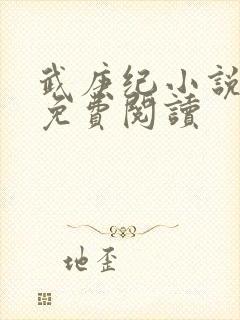 武庚纪小説
免費閱讀
地歪